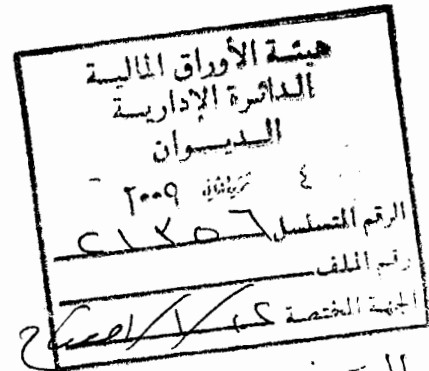 هيئة الأوراق المالية
الدائرة الإدارية
الديوان
٤ تشرين الثاني ٢٠٠٩
الرقم المتسلسل ٢١٣٥٦
رقم الملف
الجهة المختصة